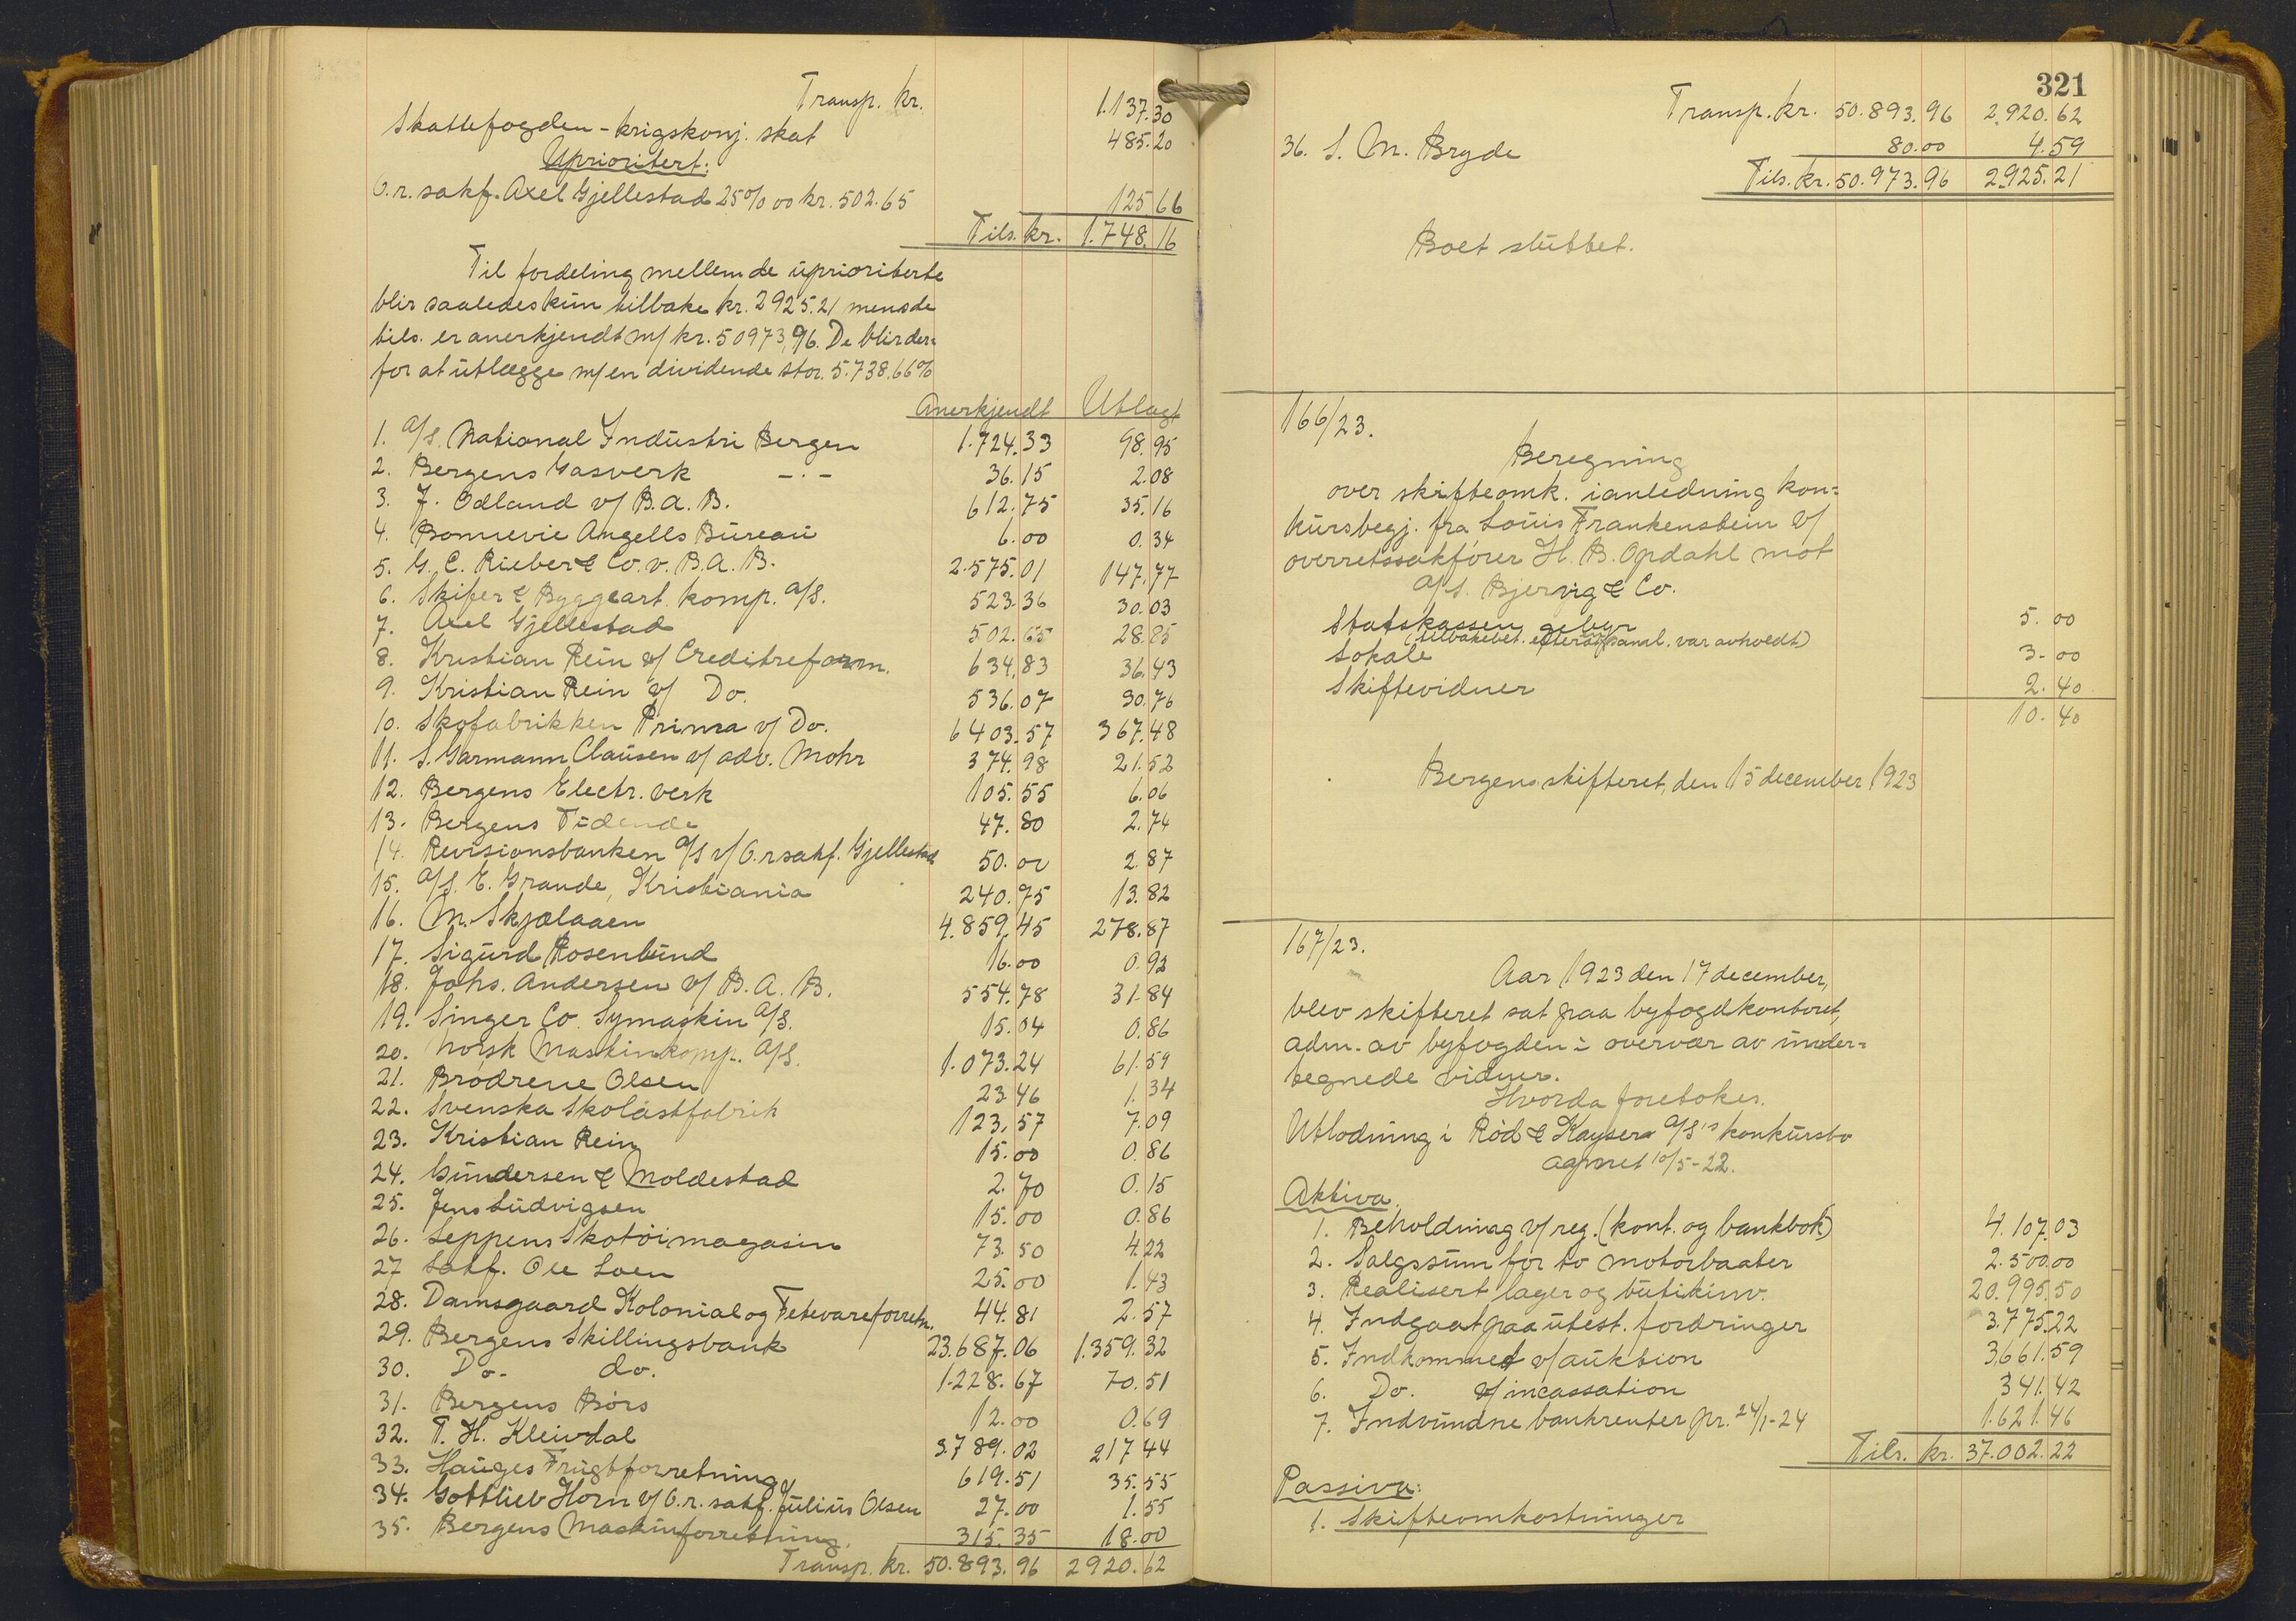 Transp. kr. 1.137.30
Skattefogden - krigskonj. skat 485.20
Uprioritert:
O.r. sakf. Axel Gjellestad 25% oo kr. 502.65 125 66
Tils. kr. 1.748.16
Til fordeling mellem de uprioriterte
blir saaledes kun tilbake kr. 2925.21 mens de
tils. er anerkjendt m/ kr. 50973,96. De blir der=
for at utlægge m/ en dividende stor. 5.738.66%
Anerkjendt Utlagt
1. A/S. National Industri Bergen 1.724.33 98.95
2. Bergens Gasverk -.- 36.15 2.08
3. J. Odland v/ B.A.B. 612.75 35.16
4. Bonnevie Angells Bureau 6.00 0.34
5. G.C. Rieber & Co. v. B.A.B. 2.575.01 147.77
6. Skifer & Byggeart. komp. A/S. 523.36 30.03
7. Axel Gjellestad 502.65 28.85
8. Kristian Rein v/ Creditreform. 634.83 36.43
9. Kristian Rein v/ Do. 536.07 30.76
10. Skofabrikken Prima v/ Do. 6403.57 367.48
11. S. Garmann Clausen v/ adv. Mohr 374.98 21.52
12. Bergens Electr. verk 105.55 6.06
13. Bergens Tidende 47.80 2.74
14. Revisionsbanken A/S v/ O.r sakf. Gjellestad 50.00 2.87
15. A/S. E. Grande, Kristiania 240.75 13.82
16. M. Skjælaaen 4.859.45 278.87
17. Sigurd Rosenlund 16.00 0.92
18. Johs. Andersen v/ B.A.B. 554.78 31.84
19. Singer Co. Symaskin A/S. 15.04 0.86
20. Norsk Maskinkomp. A/S. 1.073.24 61.59
21. Brødrene Olsen 23.46 1.34
22. Svenska Skolästfabrik 123.57 7.09
23. Kristian Rein 15.00 0.86
24. Gundersen & Moldestad 2.70 0.15
25. Jens Ludvigsen 15.00 0.86
26. Seppens Skotøimagasin 73.50 4.22
27 Sakf. Ole Loen 25.00 1.43
28. Damsgaard Kolonial og Fetevareforretn. 44.81 2.57
29. Bergens Skillingsbank 23.687.06 1.359.32
30. Do. do. 1.228.67 70.51
31. Bergens Børs 12.00 0.69
32. T. H. Kleivdal 3.789.02 217.44
33. Hauges Frugtforretning 619.51 35.55
34. Gottlieb Horn v/ O.r. sakf. Julius Olsen 27.00 1.55
35. Bergens Maskinforretning. 315.35 18.00
Transp. kr. 50.893.96 2920.62
321
Transp. kr. 50.893.96 2.920.62
36. S. M. Bryde 80.00 4.59
Tils. kr. 50.973.96 2.925.21
Boet sluttet.
166/23.
Beregning
over skifteomk. i anledning kon=
kursbegj. fra Louis Frankenstein v/
overretssakfører H. B. Opdahl mot
A/S. Bjervig & Co.
Statskassen gebyr 5.00
(tilbakebet. efterat saml. var avholdt)
Lokale 3.00
Skiftevidner 2.40
10.40
Bergens skifteret, den 15 december 1923
167/23.
Aar 1923 den 17 december,
blev skifteret sat paa byfogdkontoret,
adm. av byfogden i overvær av under=
tegnede vidner.
Hvorda foretokes.
Utlodning i Rød & Kaysers A/S's konkursbo
aapnet 10/5-22.
Aktiva.
1. Beholdning v/ reg. (kont. og bankbok) 4.107.03
2. Salgssum for to motorbaater 2.500.00
3. Realisert lager og butikinv. 20.995.50
4. Indgaat paa utest. fordringer 3.775.22
5. Indkommet v/ auktion 3661.59
6. Do. v/ incassation 341.42
7. Indvundne bankrenter pr. 24/1-24 1.621.46
Tils. kr. 37.002.22
Passiva:
1. Skifteomkostninger